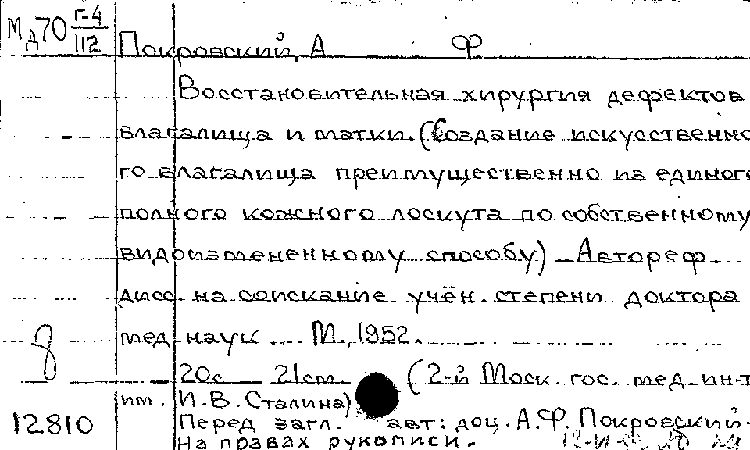 Мд70 Г-4/112
Покровский, А Ф
Восстановительная хирургия дефектов
влагалища и матки. (Создание искусственно
го влагалища преимущественно из единого
полного кожного лоскута по собственному
видоизмененному способу) Автореф
дисс. на соискание учён. степени доктора
мед наук М., 1952.
20с 21см (2-й Моск. гос. мед. ин-т
им. И.В. Сталина)
12810 Перед загл. авт: доц. А.Ф. Покровский.
На правах рукописи.